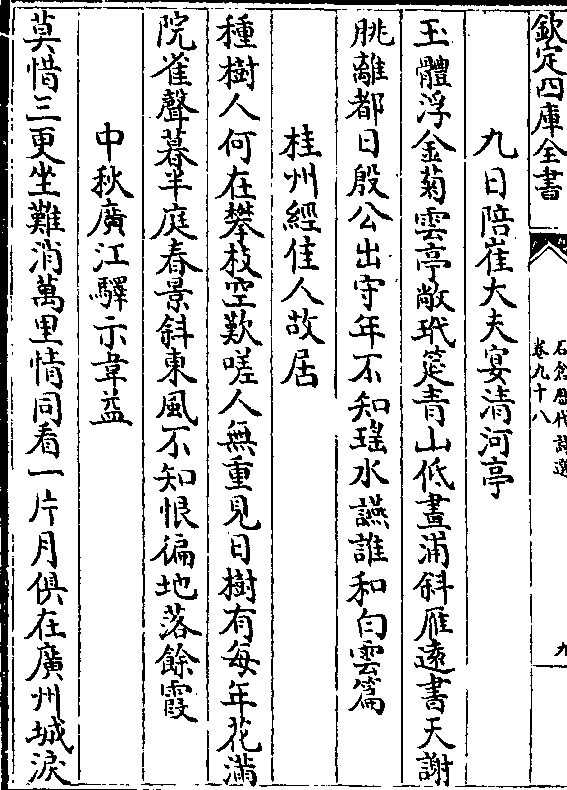 欽定四庫全書
石倉歷代詩選
卷九十八
九
九日陪崔大夫宴清河亭
玉體浮金菊雲亭敞玳筵青山低畫浦斜雁遠書天謝
朓離都日殷公出守年不知瑤水讌誰和白雲篇
桂州經佳人故居
種樹人何在攀枝空歎嗟人無重見日樹有每年花滿
院雀聲暮半庭春景斜東風不知恨徧地落餘霞
中秋廣江驛示韋益
莫惜三更坐難消萬里情同看一片月俱在廣州城淚